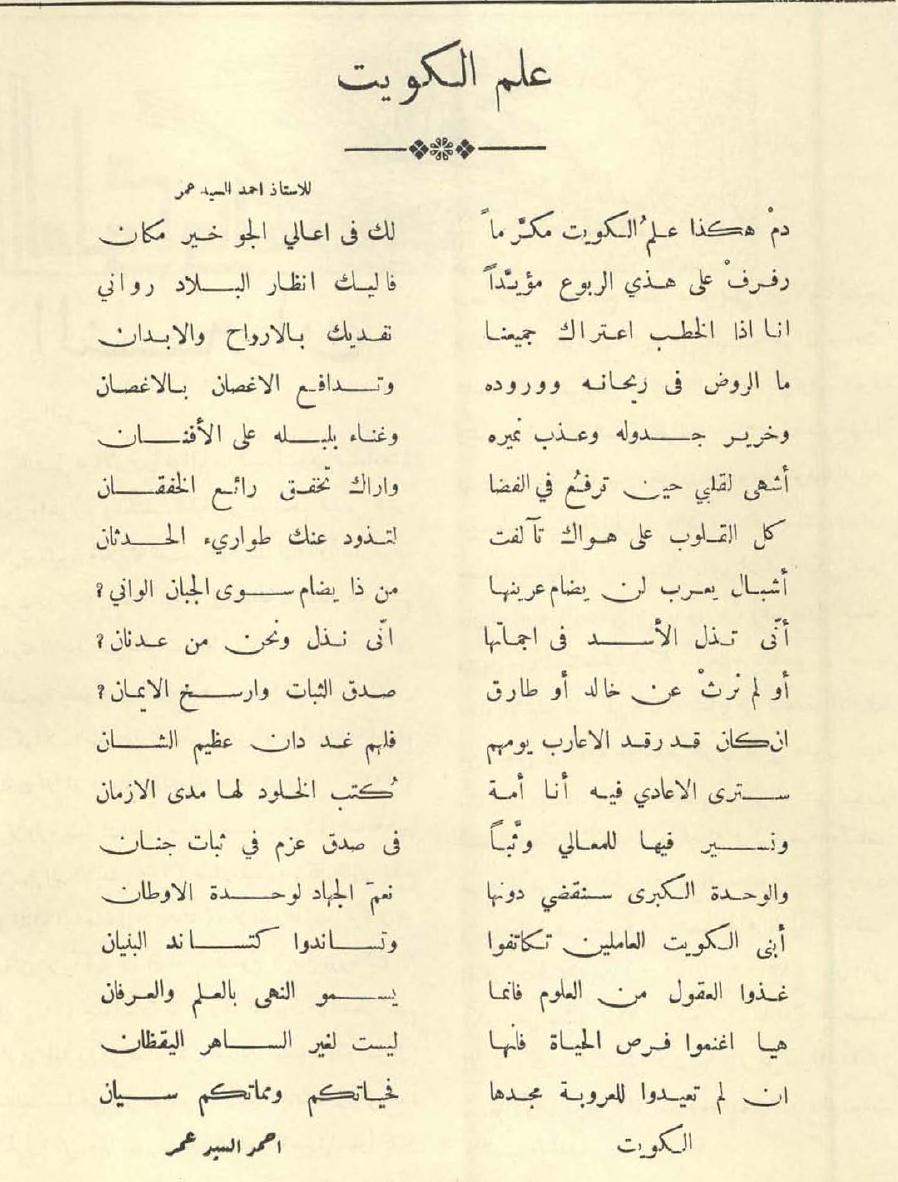 علم الكويت
للاستاذ احمد السيد عمر
دمْ هكذا علمُ الكويت مكرَّماً لك فى اعالي الجو خير مكان
رفرفْ على هذي الربوع مؤيَّداً فاليك انظار البلاد رواني
انا اذا الخطب اعتراك جميعنا نفديك بالارواح والابدان
ما الروض فى ريحانه ووروده وتدافع الاغصان بالاغصان
وخرير جدوله وعذب نميره وغناء بلبله على الأفنان
أشهى لقلبي حين ترفعُ في الفضا واراك تخفق رائع الخفقان
كل القلوب على هواك تآلفت لتذود عنك طواريء الحدثان
أشبال يعرب لن يضام عرينها من ذا يضام سوى الجبان الواني؟
أنّى تذل الأسد فى اجماتها انّى نذل ونحن من عدنان؟
أو لم نرثْ عن خالد أو طارق صدق الثبات وارسخ الايمان؟
ان كان قد رقد الاعارب يومهم فلهم غد دان عظيم الشان
سترى الاعادي فيه أنا أمة كُتب الخلود لها مدى الازمان
ونسير فيها للمعالي وثَّباً فى صدق عزم في ثبات جنان
والوحدة الكبرى سنقضي دونها نعمَ الجهاد لوحدة الاوطان
أبنى الكويت العاملين تكاتفوا وتساندوا كتساند البنيان
غذوا العقول من العلوم فانما يسمو النهى بالعلم والعرفان
هيا اغنموا فرص الحياة فانها ليست لغير الساهر اليقظان
ان لم تعيدوا للعروبة مجدها فحياتكم ومماتكم سيان
الكويت احمد السيد عمر